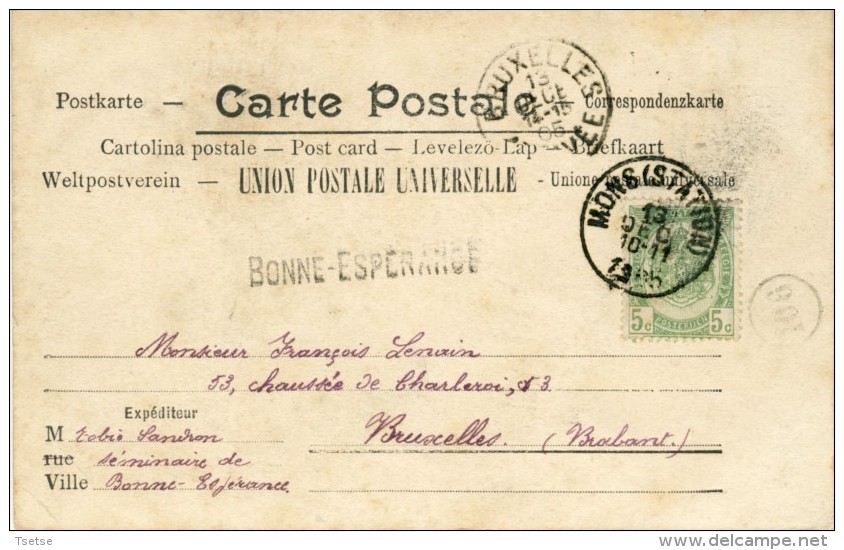 BRUXELLES
Postkarte — Carte Postale — Correspondenzkarte
Cartolina postale — Post card — Levelezö-Lap — Briefkaart
Weltpostverein — UNION POSTALE UNIVERSELLE - Unione postale universale
MONS (STATION)
13
DEC
10-11
1905
BONNE-ESPÉRANCE
5c POSTERIJEN 5c
106
Monsieur François Lenain
53, chaussée de Charleroi, 53
Expéditeur
M Sandron
Bruxelles. (Brabant.)
rue séminaire de
Ville Bonne-Espérance
Tsetse
delcampe.net